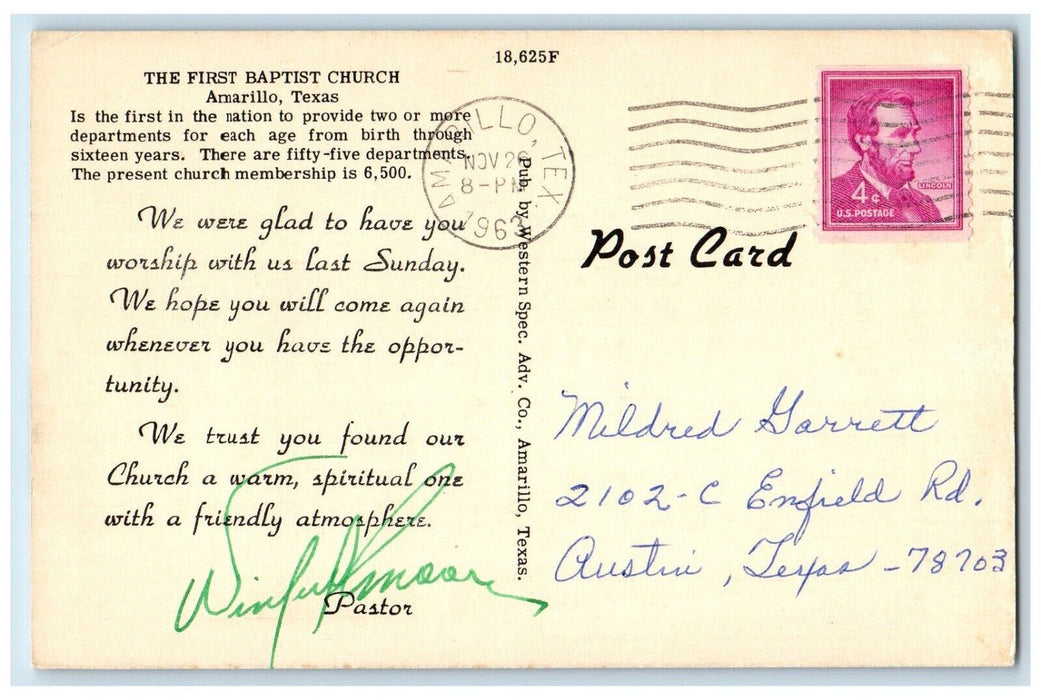 18,625F
THE FIRST BAPTIST CHURCH
Amarillo, Texas
Is the first in the nation to provide two or more
departments for each age from birth through
sixteen years. There are fifty-five departments.
The present church membership is 6,500.
We were glad to have you
worship with us last Sunday.
We hope you will come again
whenever you have the oppor-
tunity.
We trust you found our
Church a warm, spiritual one
with a friendly atmosphere.
Winfred Moore
Pastor
Pub. by Western Spec. Adv. Co., Amarillo, Texas.
AMARILLO, TEX.
NOV 26
8-PM
1963
LINCOLN
4¢
U.S. POSTAGE
Post Card
Mildred Garrett
2102-C Enfield Rd.
Austin, Texas - 78703